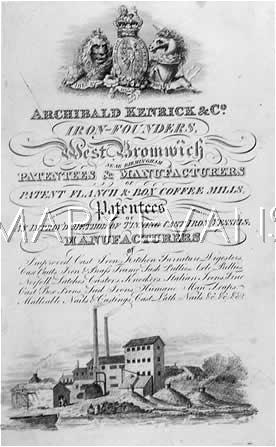 ARCHIBALD KENRICK & Co.
IRON-FOUNDERS,
West Bromwich
NEAR BIRMINGHAM
PATENTEES & MANUFACTURERS
OF
PATENT FLANCH & BOX COFFEE MILLS,
Patentees
METHOD OF TINNING CAST IRON VESSELS,
MANUFACTURERS
of
Improved Cast Iron Kitchen Furniture, Digesters,
Iron & Brass Frame Sash Pullies, Pullies,
Norfolk Latches, Castors, Knockers, Italian Irons, Fine
Cast Box Irons, Sad Irons, Humane Man Traps,
Malleable Nails & Castings, Cast Lath Nails &c. &c. &c.